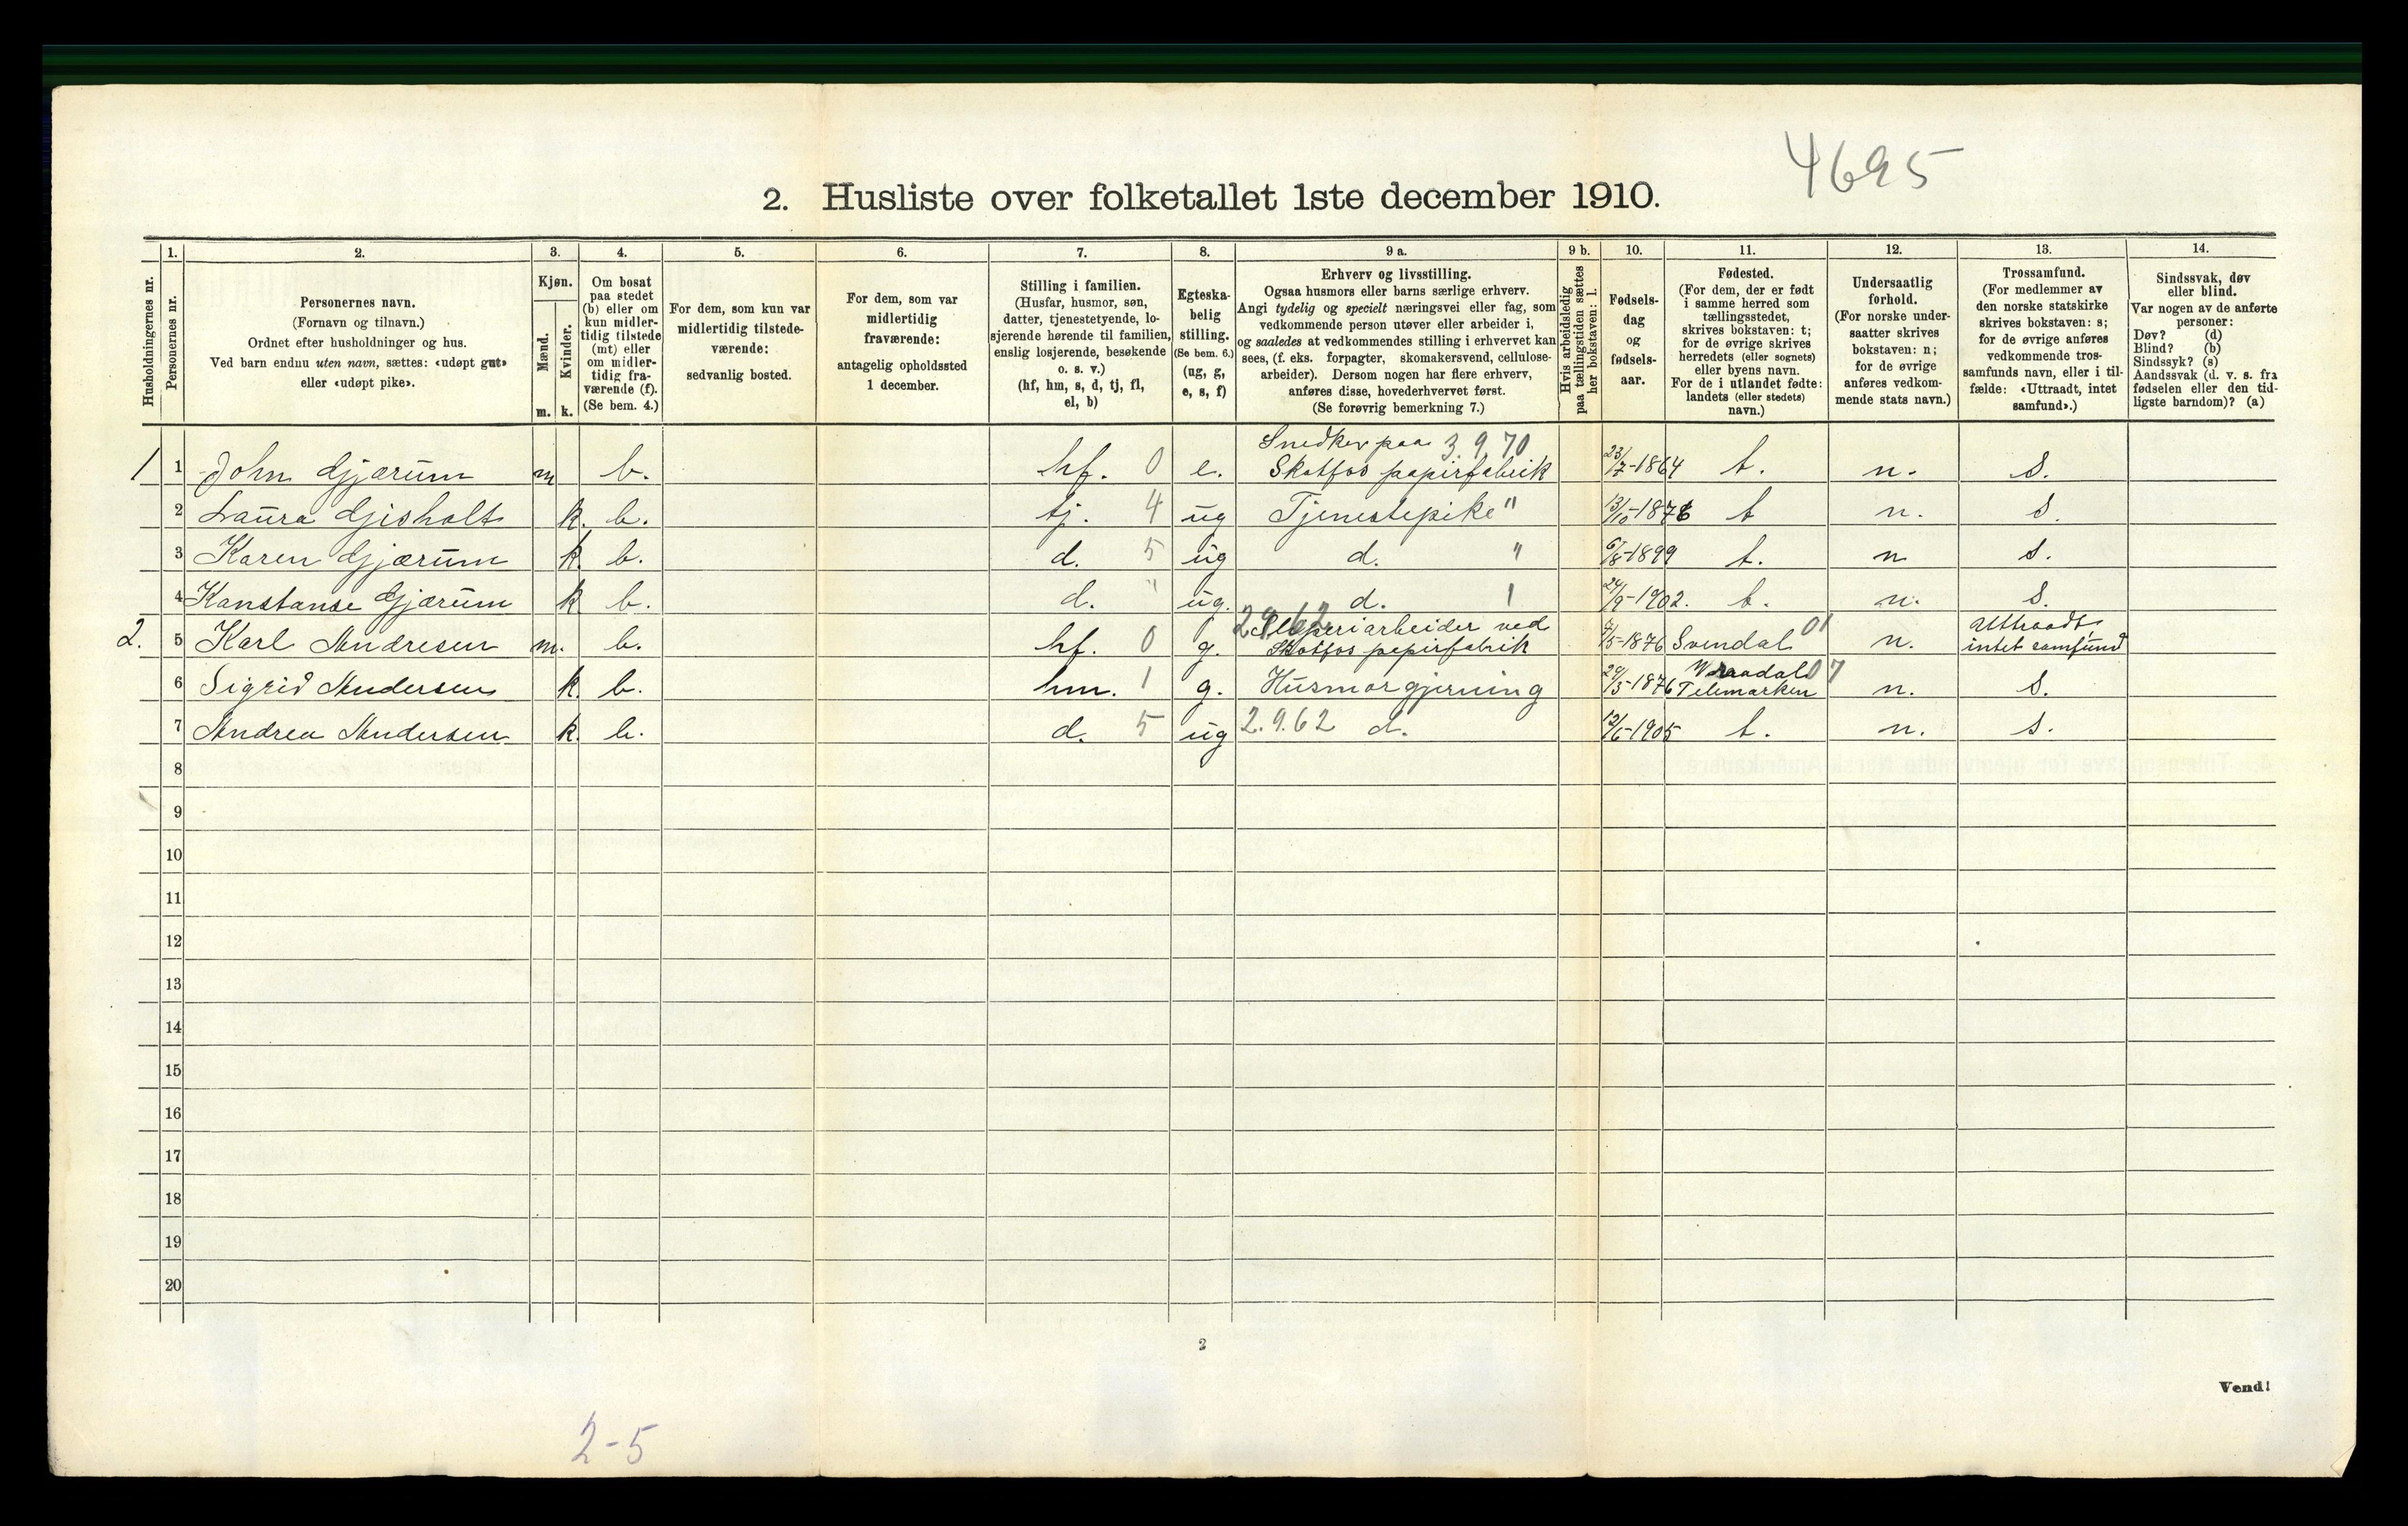 4695
2. Husliste over folketallet 1ste december 1910.
Husholdningernes nr.
1. Personernes nr.
2. Personernes navn. (Fornavn og tilnavn.) Ordnet efter husholdninger og hus. Ved barn endnu uten navn, sættes: «udøpt gut» eller «udøpt pike».
3. Kjøn. Mænd. m. Kvinder. k.
4. Om bosat paa stedet (b) eller om kun midlertidig tilstede (mt) eller om midlertidig fraværende (f). (Se bem. 4.)
5. For dem, som kun var midlertidig tilstedeværende: sedvanlig bosted.
6. For dem, som var midlertidig fraværende: antagelig opholdssted 1 december.
7. Stilling i familien. (Husfar, husmor, søn, datter, tjenestetyende, losjerende hørende til familien, enslig losjerende, besøkende o. s. v.) (hf, hm, s, d, tj, fl, el, b)
8. Egteskabelig stilling. (Se bem. 6.) (ug, g, e, s, f)
9 a. Erhverv og livsstilling. Ogsaa husmors eller barns særlige erhverv. Angi tydelig og specielt næringsvei eller fag, som vedkommende person utøver eller arbeider i, og saaledes at vedkommendes stilling i erhvervet kan sees, (f. eks. forpagter, skomakersvend, cellulosearbeider). Dersom nogen har flere erhverv, anføres disse, hovederhvervet først. (Se forøvrig bemerkning 7.)
9 b. Hvis arbeidsledig paa tællingstiden sættes her bokstaven: l.
10. Fødselsdag og fødselsaar.
11. Fødested. (For dem, der er født i samme herred som tællingsstedet, skrives bokstaven: t; for de øvrige skrives herredets (eller sognets) eller byens navn. For de i utlandet fødte: landets (eller stedets) navn.)
12. Undersaatlig forhold. (For norske undersaatter skrives bokstaven: n; for de øvrige anføres vedkommende stats navn.)
13. Trossamfund. (For medlemmer av den norske statskirke skrives bokstaven: s; for de øvrige anføres vedkommende trossamfunds navn, eller i tilfælde: «Uttraadt, intet samfund».)
14. Sindssvak, døv eller blind. Var nogen av de anførte personer: Døv? (d) Blind? (b) Sindssyk? (s) Aandssvak (d. v. s. fra fødselen eller den tidligste barndom)? (a)
1 1 John Gjærum m b. hf. 0 e. Snedker paa 3.9.70 Skotfos papirfabrik 23/7-1864 t. n. s.
2 Laura Gisholt k. b. tj. 4 ug Tjenestepike " 13/10-1876 t n. s.
3 Karen Gjærum k. b. d. 5 ug d. " 6/8-1899 t. n s.
4 Kanstanse Gjærum k b. d. " ug. d. 1 24/9-1902. t. n. s.
2. 5 Karl Andresen m. b. hf. 0 g. 2.9.62 Sliperiarbeider ved Skotfos papirfabrik 4/5-1876 Svendal 01 n. Uttraadt, intet samfund
6 Sigrid Andersen k. b. hm. 1 g. Husmorgjerning 29/3-1876 Vraadal 07 Telemarken n. s.
7 Andrea Andersen k. b. d. 5 ug 2.9.62 d. 12/6-1905 t. n. s.
8
9
10
11
12
13
14
15
16
17
18
19
20
2
Vend!
2-5